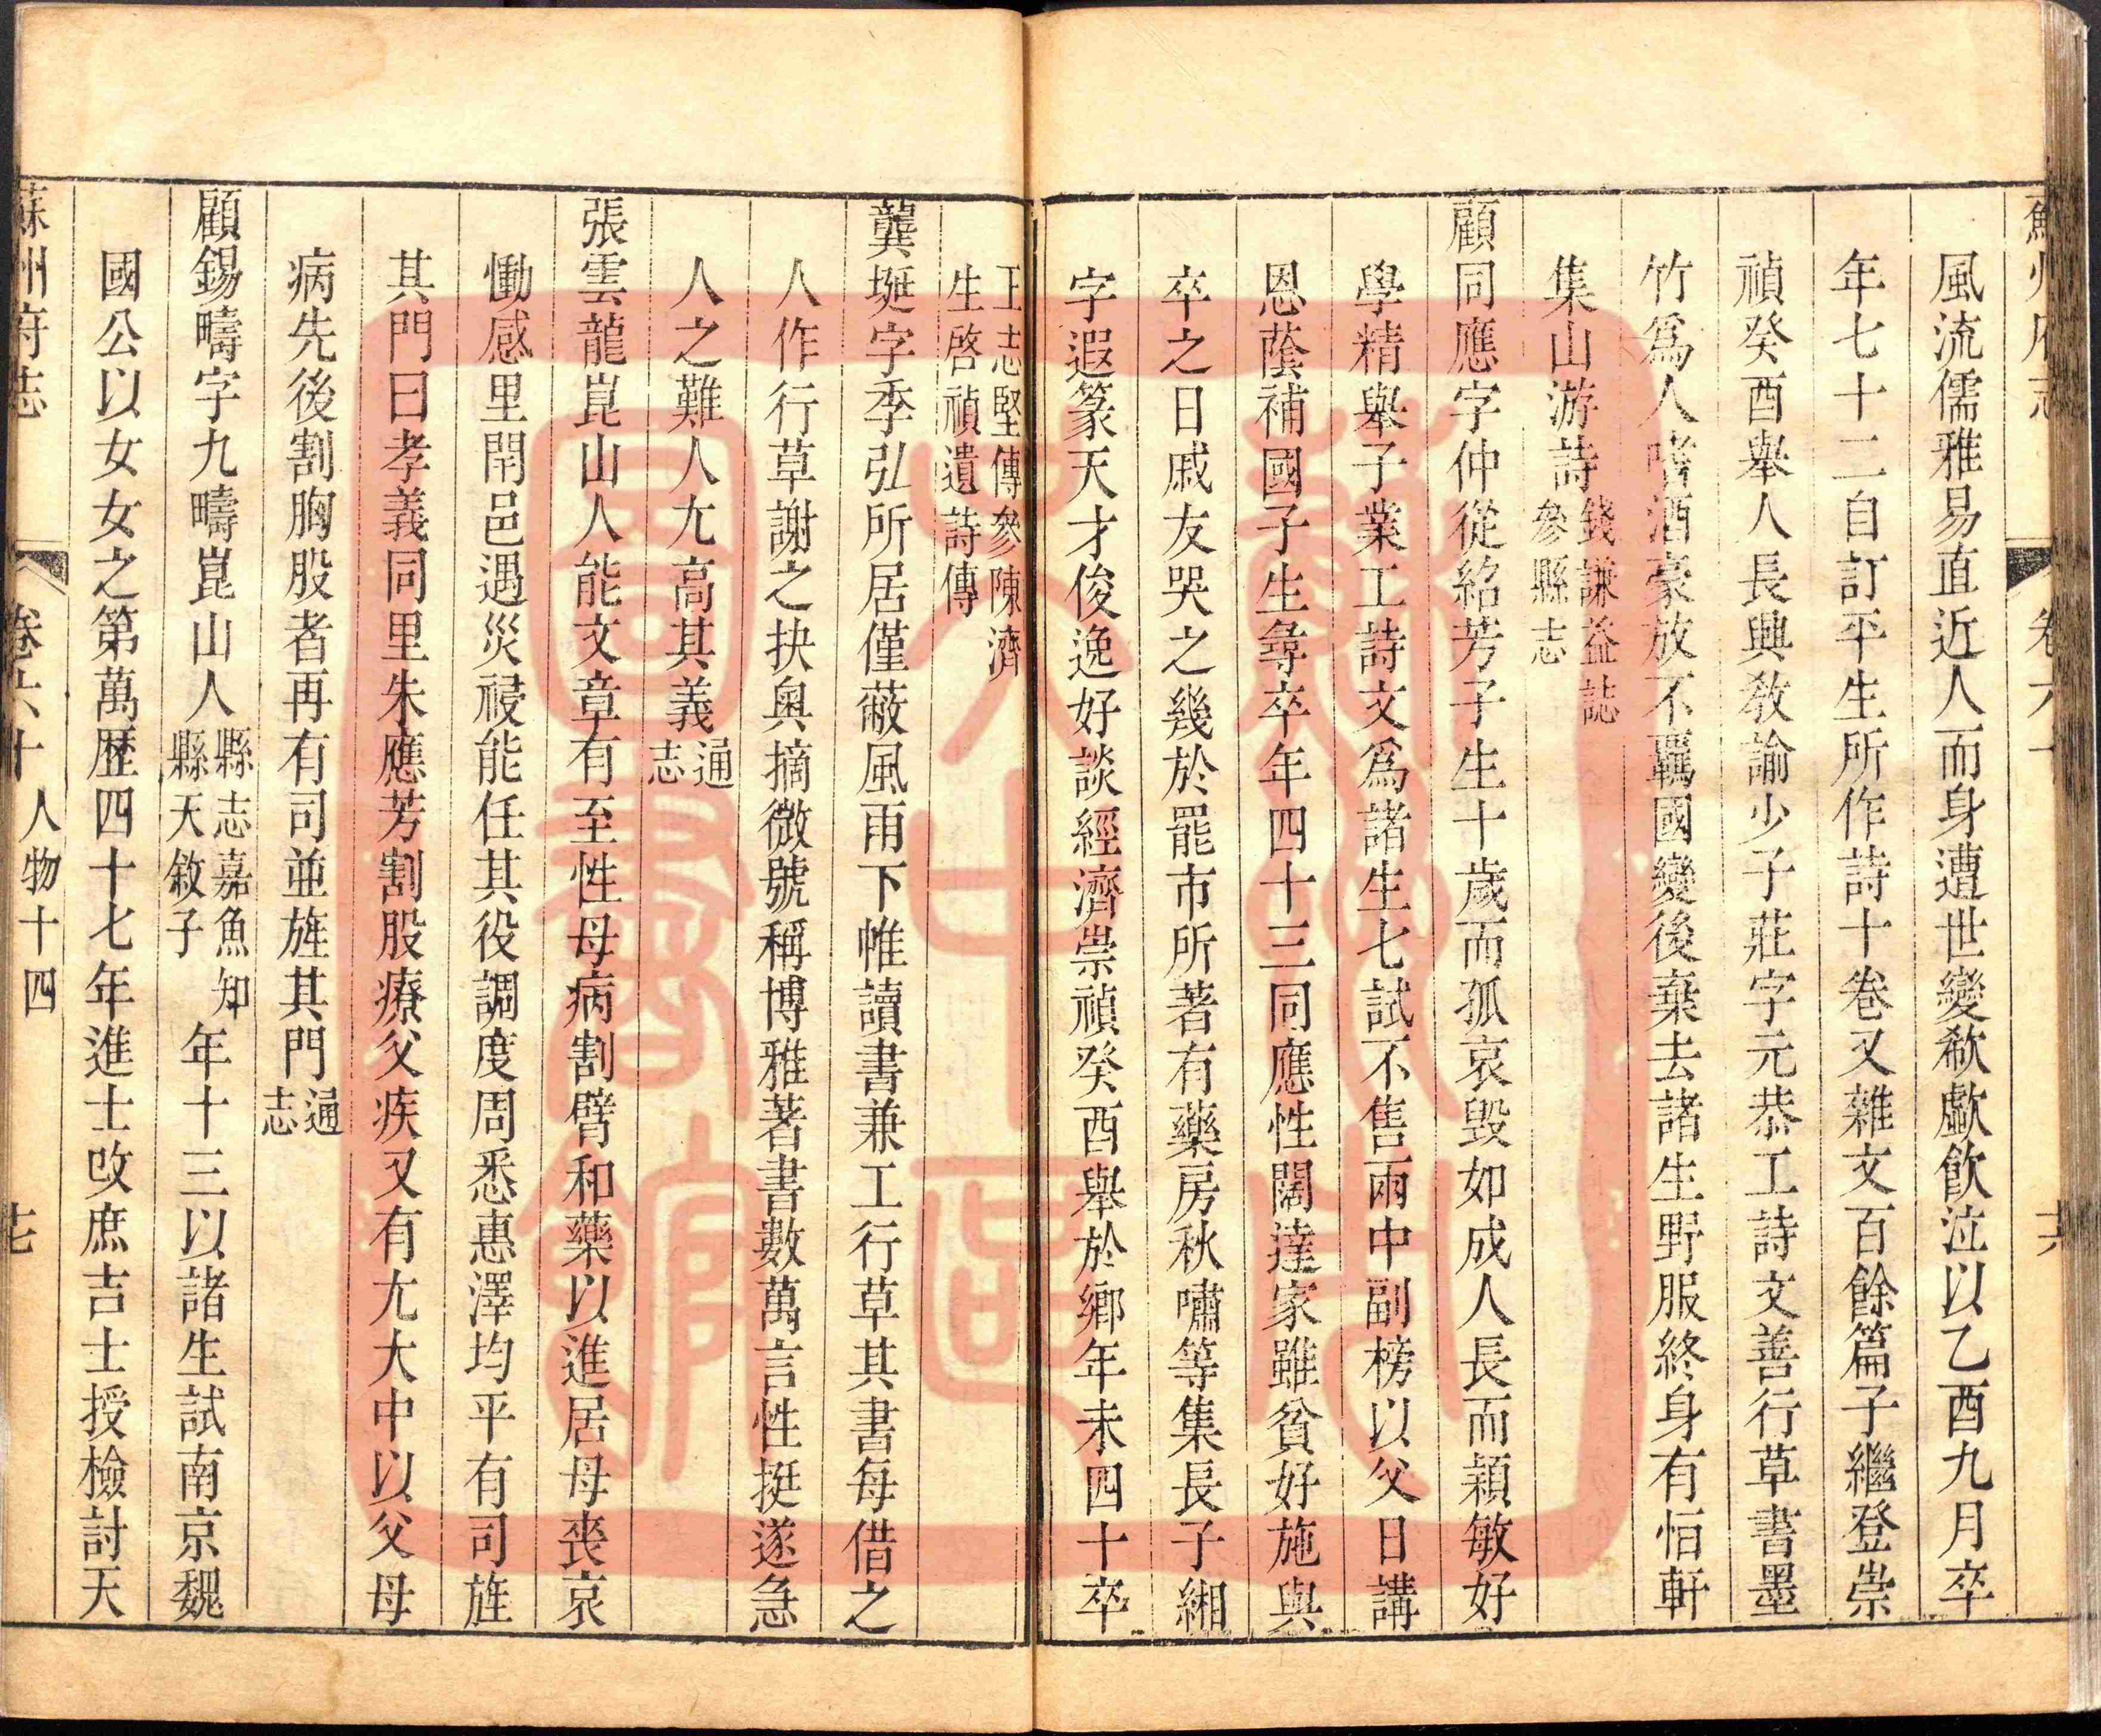 風流儒雅易直近人而身遭世變欷歔飲泣以乙酉九月卒
年七十二自訂平生所作詩十卷又雜文百餘篇子繼登崇
禎癸酉舉人長興敎諭少子莊字元恭工詩文善行草書墨
竹爲人嗜酒豪放不羈國變後棄去諸生野服終身有恒軒
集山游詩錢謙益誌參縣志
顧同應字仲從紹芳子生十歲而孤哀毀如成人長而穎敏好
學精舉子業工詩文爲諸生七試不售兩中副榜以父日講
恩蔭補國子生尋卒年四十三同應性闊達家雖貧好施與
卒之日戚友哭之幾於罷市所著有藥房秋嘯等集長子緗
字遐篆天才俊逸好談經濟崇禎癸酉舉於鄉年未四十卒
王志堅傳參陳濟
生啓禎遺詩傳
龔埏字季弘所居僅蔽風雨下帷讀書兼工行草其書每借之
人作行草謝之抉奧摘微號稱博雅著書數萬言性挺遂急
人之難人尤高其義通志
張雲龍崑山人能文章有至性母病割臂和藥以進居母喪哀
慟感里閈邑遇災祲能任其役調度周悉惠澤均平有司旌
其門曰孝義同里朱應芳割股療父疾又有尤大中以父母
病先後割胸股者再有司並旌其門通志
顧錫疇字九疇崑山人縣志嘉魚知縣天敘子年十三以諸生試南京魏
國公以女女之第萬歷四十七年進士改庶吉士授檢討天
蘇州府志 卷六十 人物十四 十七